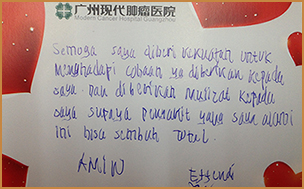 广州现代肿瘤医院
Modern Cancer Hospital Guangzhou
Semoga saya diberi kekuatan untuk
menghadapi cobaan yg diberikan kepada
saya. Dan diberikan mulizat kepada
saya supaya penyakit yang saya alami
ini bisa sembuh total.
AMIN